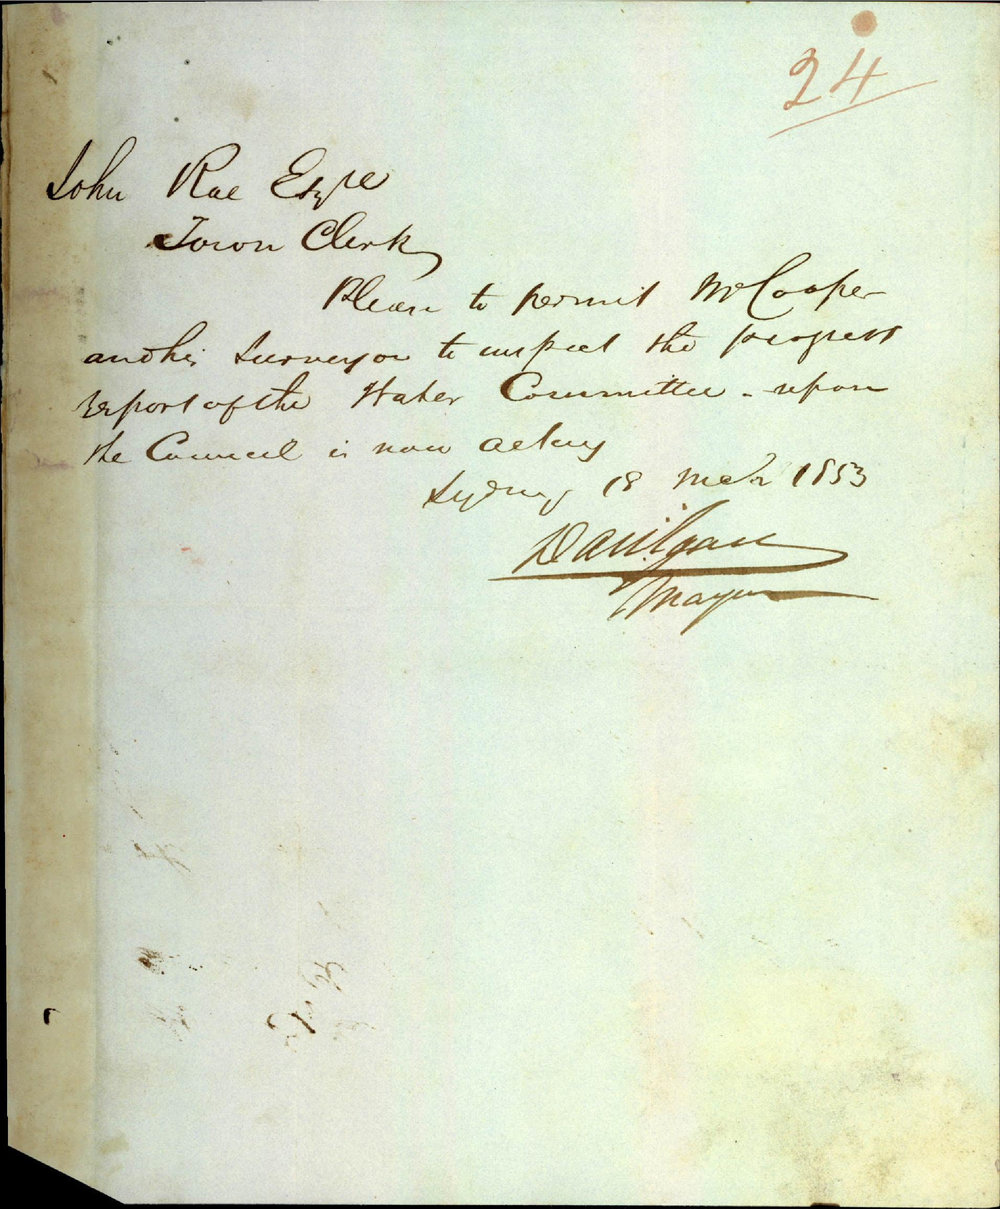 24
John Rae Esqre
Town Clerk
Please to permit Mr Cooper
and his Surveyor to inspect the progress
report of the Water Committee - upon
the Council is now acting
Sydney 18 Mar 1853
Dan Egan
Mayor